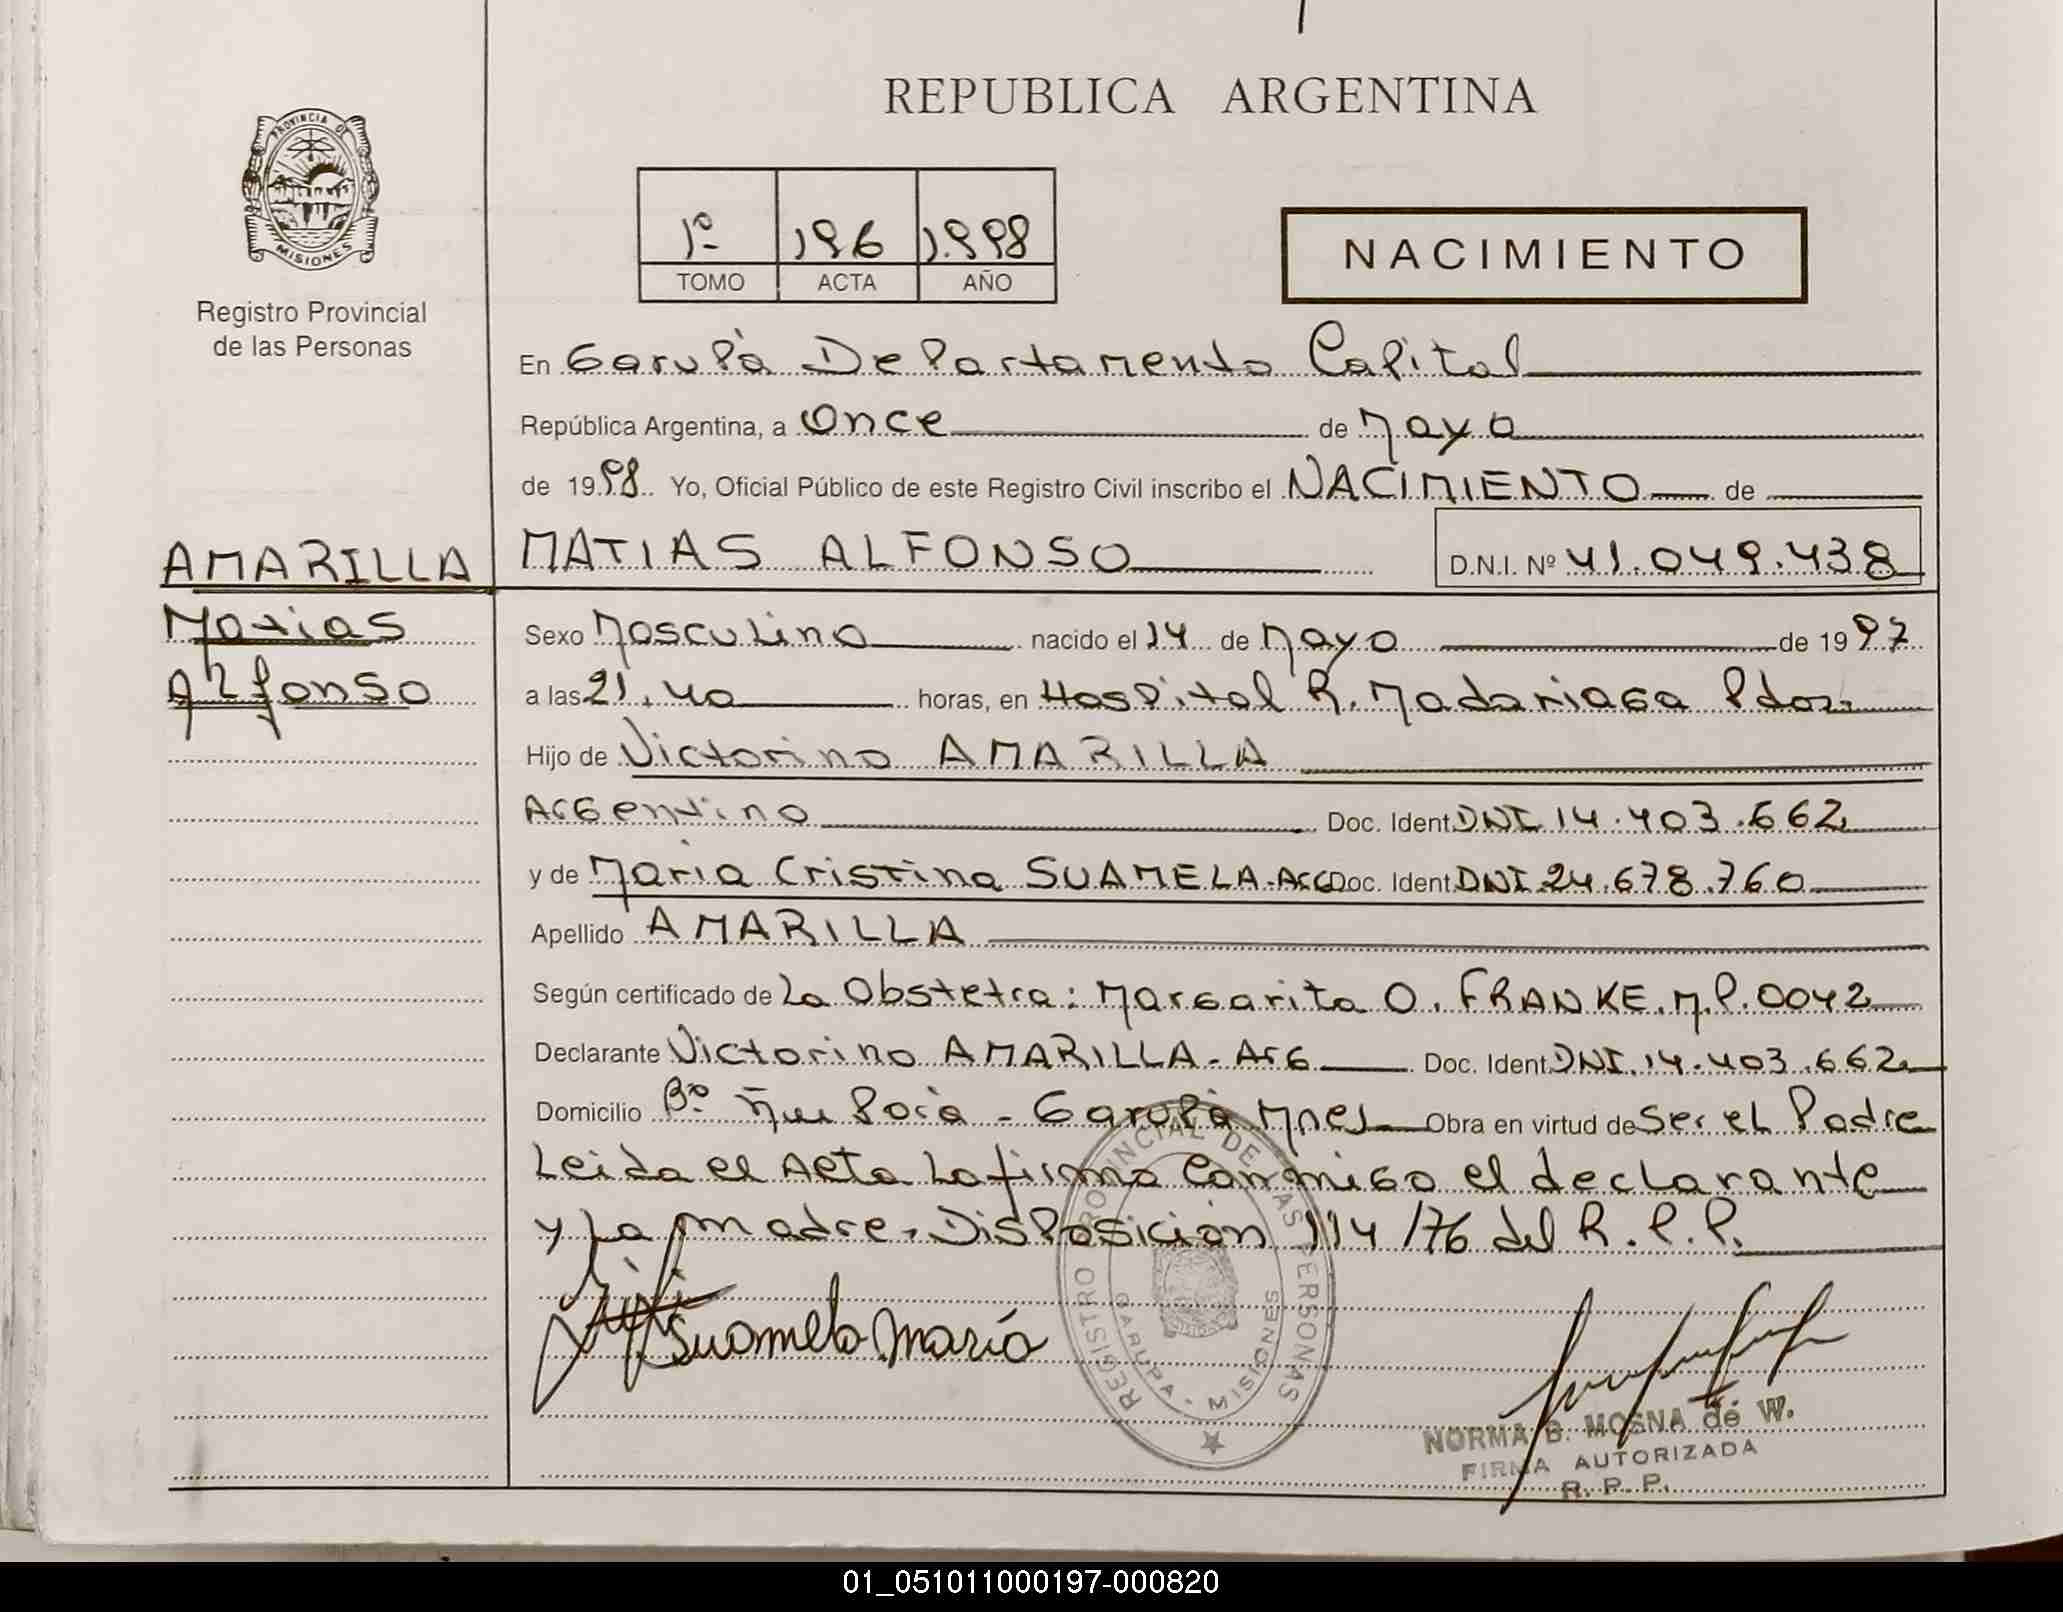 REPUBLICA ARGENTINA
PROVINCIA DE
MISIONES
Registro Provincial
de las Personas
1º 196 1.998
TOMO ACTA AÑO
NACIMIENTO
En Garupà Departamento Capital
República Argentina, a Once de Mayo
de 1998. Yo, Oficial Público de este Registro Civil inscribo el NACIMIENTO de
AMARILLA MATIAS ALFONSO D.N.I. Nº 41.049.438
Matias
Alfonso
Sexo Masculino nacido el 14 de Mayo de 1997
a las 21.40 horas, en Hospital R. Madariaga Pdas
Hijo de Victorino AMARILLA
Argentino Doc. Ident. DNI 14.403.662
y de Maria Cristina SUAMELA-Arg Doc. Ident. DNI 24.678.760
Apellido AMARILLA
Según certificado de La Obstetra: Margarita O. FRANKE.M.P.0042
Declarante Victorino AMARILLA-Arg Doc. Ident. DNI.14.403.662
Domicilio Bº Ñu Porà - Garupà Mnes Obra en virtud de Ser el Padre
Leida el Acta La firma Conmigo el declarante
y La madre. Disposiciòn 114/76 del R.P.P.
Suamela Maria
REGISTRO PROVINCIAL DE LAS PERSONAS
GARUPA - MISIONES
NORMA B. MOSNA de W.
FIRMA AUTORIZADA
R. P. P.
01_051011000197-000820